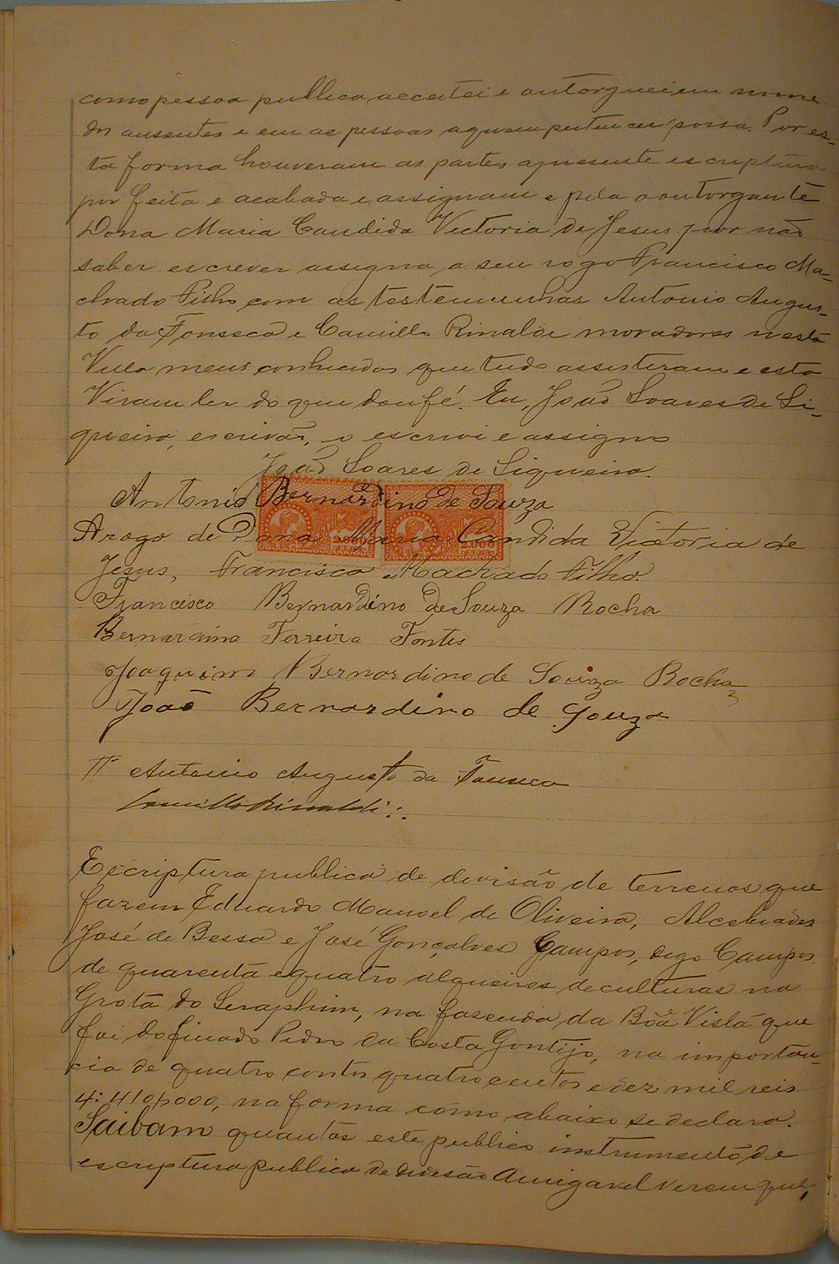 como pessoa publica acceitei e outorguei em nome
dos ausentes e em as pessoas a quem pertencer possa. Por es-
ta forma houveram as partes a presente escriptura
por feita e acabada e assignam e pela outorgante
Dona Maria Candida Victoria de Jesus por não
saber escrever assigna a seu rogo Francisco Ma-
chado Filho com as testemunhas Antonio Augus-
to da Fonseca e Camillo Rinaldi moradores nesta
Villa meus conhecidos que tudo assisteram e esta
Viram ler do que dou fé. Eu, João Soares de Si-
queira, escrivão, o escrivi e assigno
João Soares de Siqueira.
Antonio Bernardino de Souza
Arogo de Dona Maria Candida Victoria de
Jesus, Francisco Machado Filho.
Francisco Bernardino de Souza Rocha
Bernardina Ferreira Fontes
Joaquim Bernardino de Souza Rocha
João Bernardino de Souza
Antonio Augusto da Fonseca
Camillo Rinaldi
Escriptura publica de divisão de terrenos que
fazem Eduardo Manoel de Oliveira, Alcebiades
José de Bessa e José Gonçalves Gampos, digo Campos
de quarenta e quatro alqueires de culturas na
Grota do Seraphim, na fasenda da Bôa Vista que
foi do finado Pedro da Costa Gontijo, na importan-
cia de quatro contos quatrocentos e dez mil reis
4:410$000, na forma como abaixo se declara.
Saibam quantos este publico instrumento de
escriptura publica de divisão Amigavel verem que,